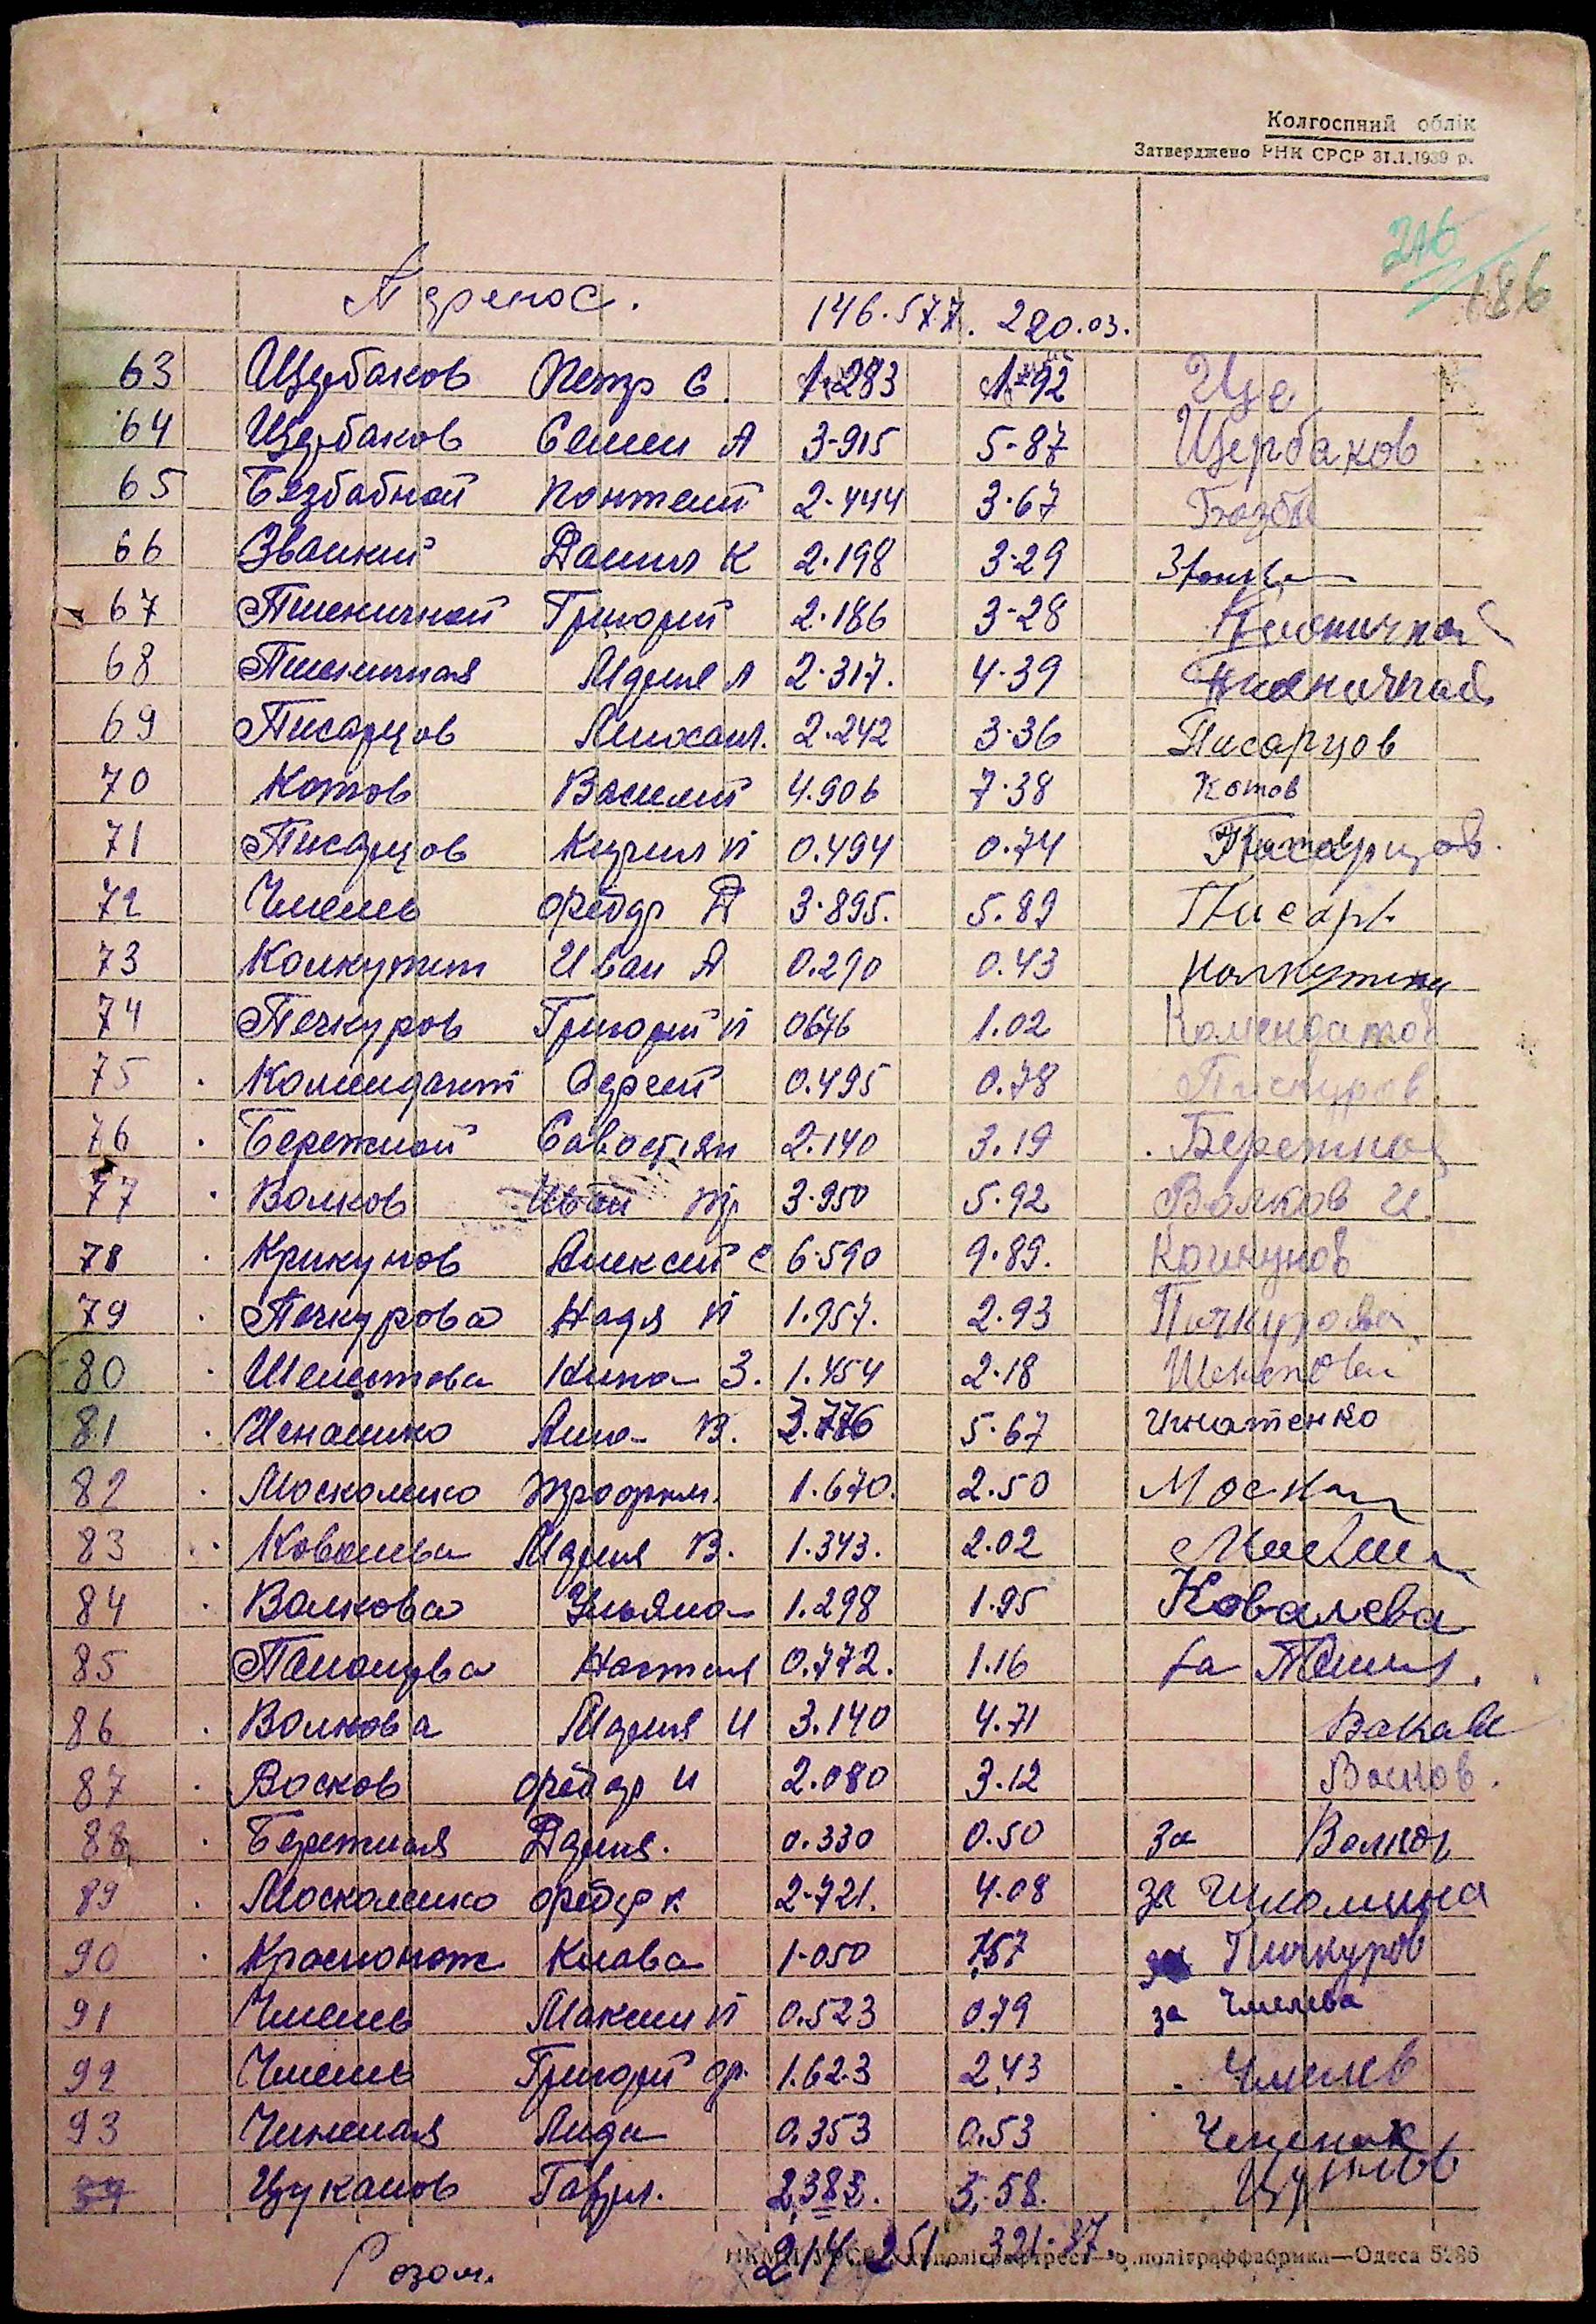 Колгоспний облік
Затверджено РНК СРСР 31.1.1939 р.
216
186
Перенос. 146.577. 220.03.
63 Щербаков Петр С. 1.283 1.92 Ще
64 Щербаков Семен А 3-915 5-87 Щербаков
65 Безбабной Пантелей 2.444 3.67
66 Званкий Данил К 2.198 3.29
67 Пшеничной Григорий 2.186 3-28
68 Пшеничная Мария А 2.317. 4.39
69 Писарцов 2.242 3.36 Писарцов
70 Котов Василий 4.906 7.38 Котов
71 Писарцов Кирил И 0.494 0.74 Писарцов.
72 Чмелев Федор Д 3.895. 5.89 Писар
73 Колкутин Иван А 0.290 0.43 Колкутин
74 Печкуров Григорий И 0676 1.02 Комендатов
75 . Комендант Сергей 0.495 0.78 Пичкуров
76 . Бережной Савостян 2.140 3.19 . Бережной
77 . Волков Иван Тр 3.950 5.92 Волков И.
78 . Крикунов Алексей С 6.590 9.89. Крикунов
79 . Печкурова Надя И 1.957. 2.93 Пичкурова
80 . Шелестова Нина З. 1.454 2.18
81 . Игнатенко Анна В. 3.776 5.67 Игнатенко
82 . Москаленко Трофим. 1.670. 2.50 Моск
83 . Ковалева Мария В. 1.343. 2.02
84 . Волкова Ульяна 1.298 1.95 Ковалева
85 Настия 0.772. 1.16 за
86 . Волкова Мария И 3.140 4.71
87 . Восков Федор И 2.080 3.12 Восков.
88 . Бережная Дария. 0.330 0.50 за Волков
89 . Москаленко Федор К 2.721. 4.08 за
90 . Краснонож Клава 1.050 1,57 за Пичкуров
91 Чмелев Максим И 0.523 0.79 за Чмелева
92 Чмелев Григорий Ф. 1.623 2,43 . Чмелев
93 Лида 0.353 0.53
94 Цуканов Гаврил. 2,383. 3.58.
Разом. 214 251. 321.37.
НКМП УРСР. Укрполіграфтрест— поліграффабрика—Одеса 5286